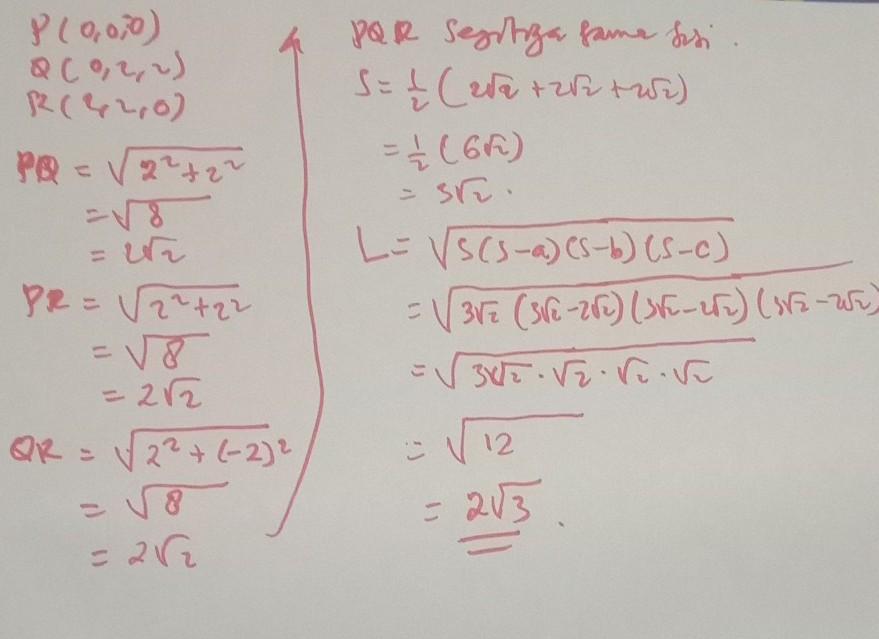 P(0,0,0)
Q(0,2,2)
R(2,2,0)
PQ = √2²+2²
= √8
= 2√2
PR = √2²+2²
= √8
= 2√2
QR = √2²+(-2)²
= √8
= 2√2
PQR segitiga sama sisi.
S = 1/2 (2√2 + 2√2 + 2√2)
= 1/2 (6√2)
= 3√2.
L = √S(S-a)(S-b)(S-c)
= √3√2 (3√2-2√2)(3√2-2√2)(3√2-2√2)
= √3√2 · √2 · √2 · √2
= √12
= 2√3.